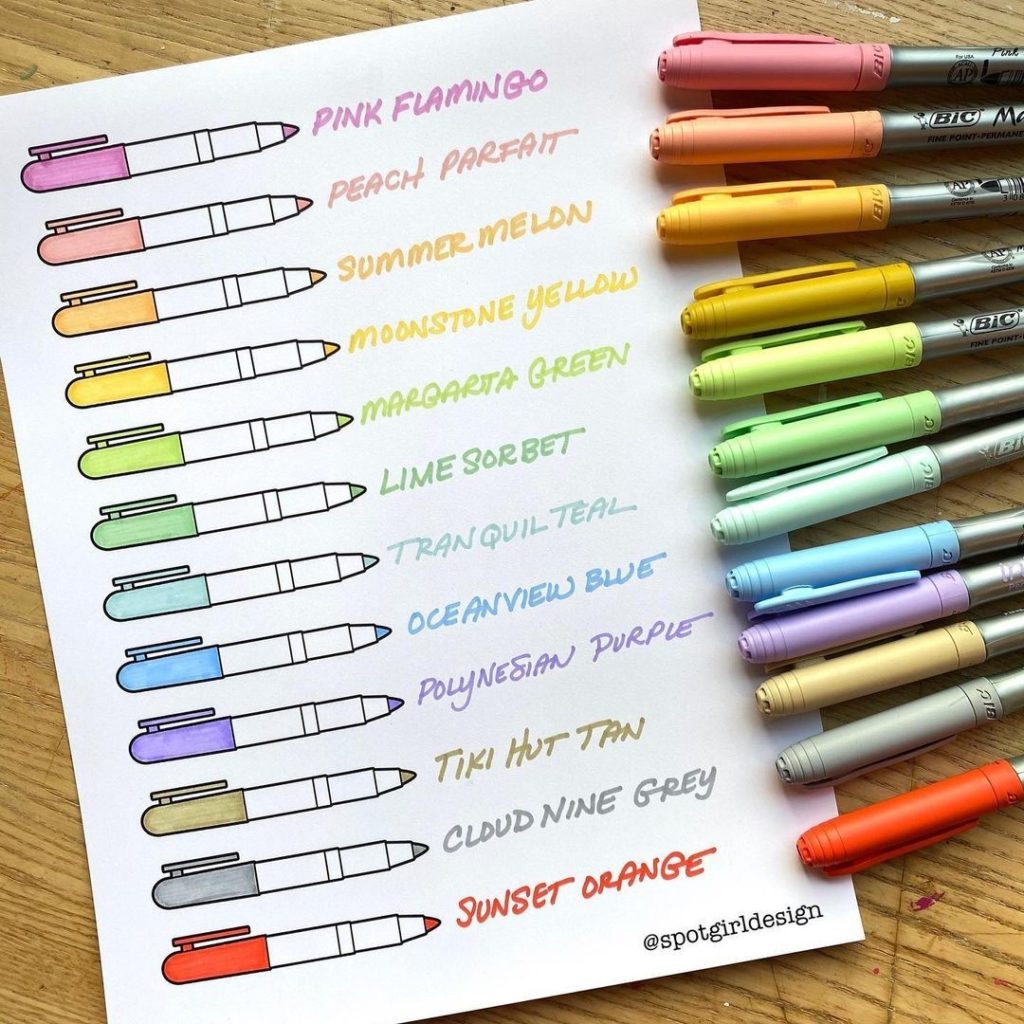 PINK FLAMINGO
PEACH PARFAIT
SUMMER MELON
MOONSTONE YELLOW
MARGARTA GREEN
LIME SORBET
TRANQUIL TEAL
OCEANVIEW BLUE
POLYNESIAN PURPLE
TIKI HUT TAN
CLOUD NINE GREY
SUNSET ORANGE
@spotgirldesign
BIC
For USA
AP
Pink
BIC Ma
FINE POINT•PERMANE
BIC
AP
BIC
AP
BIC
BIC
FINE POINT•
BIC
BIC
BIC
BIC